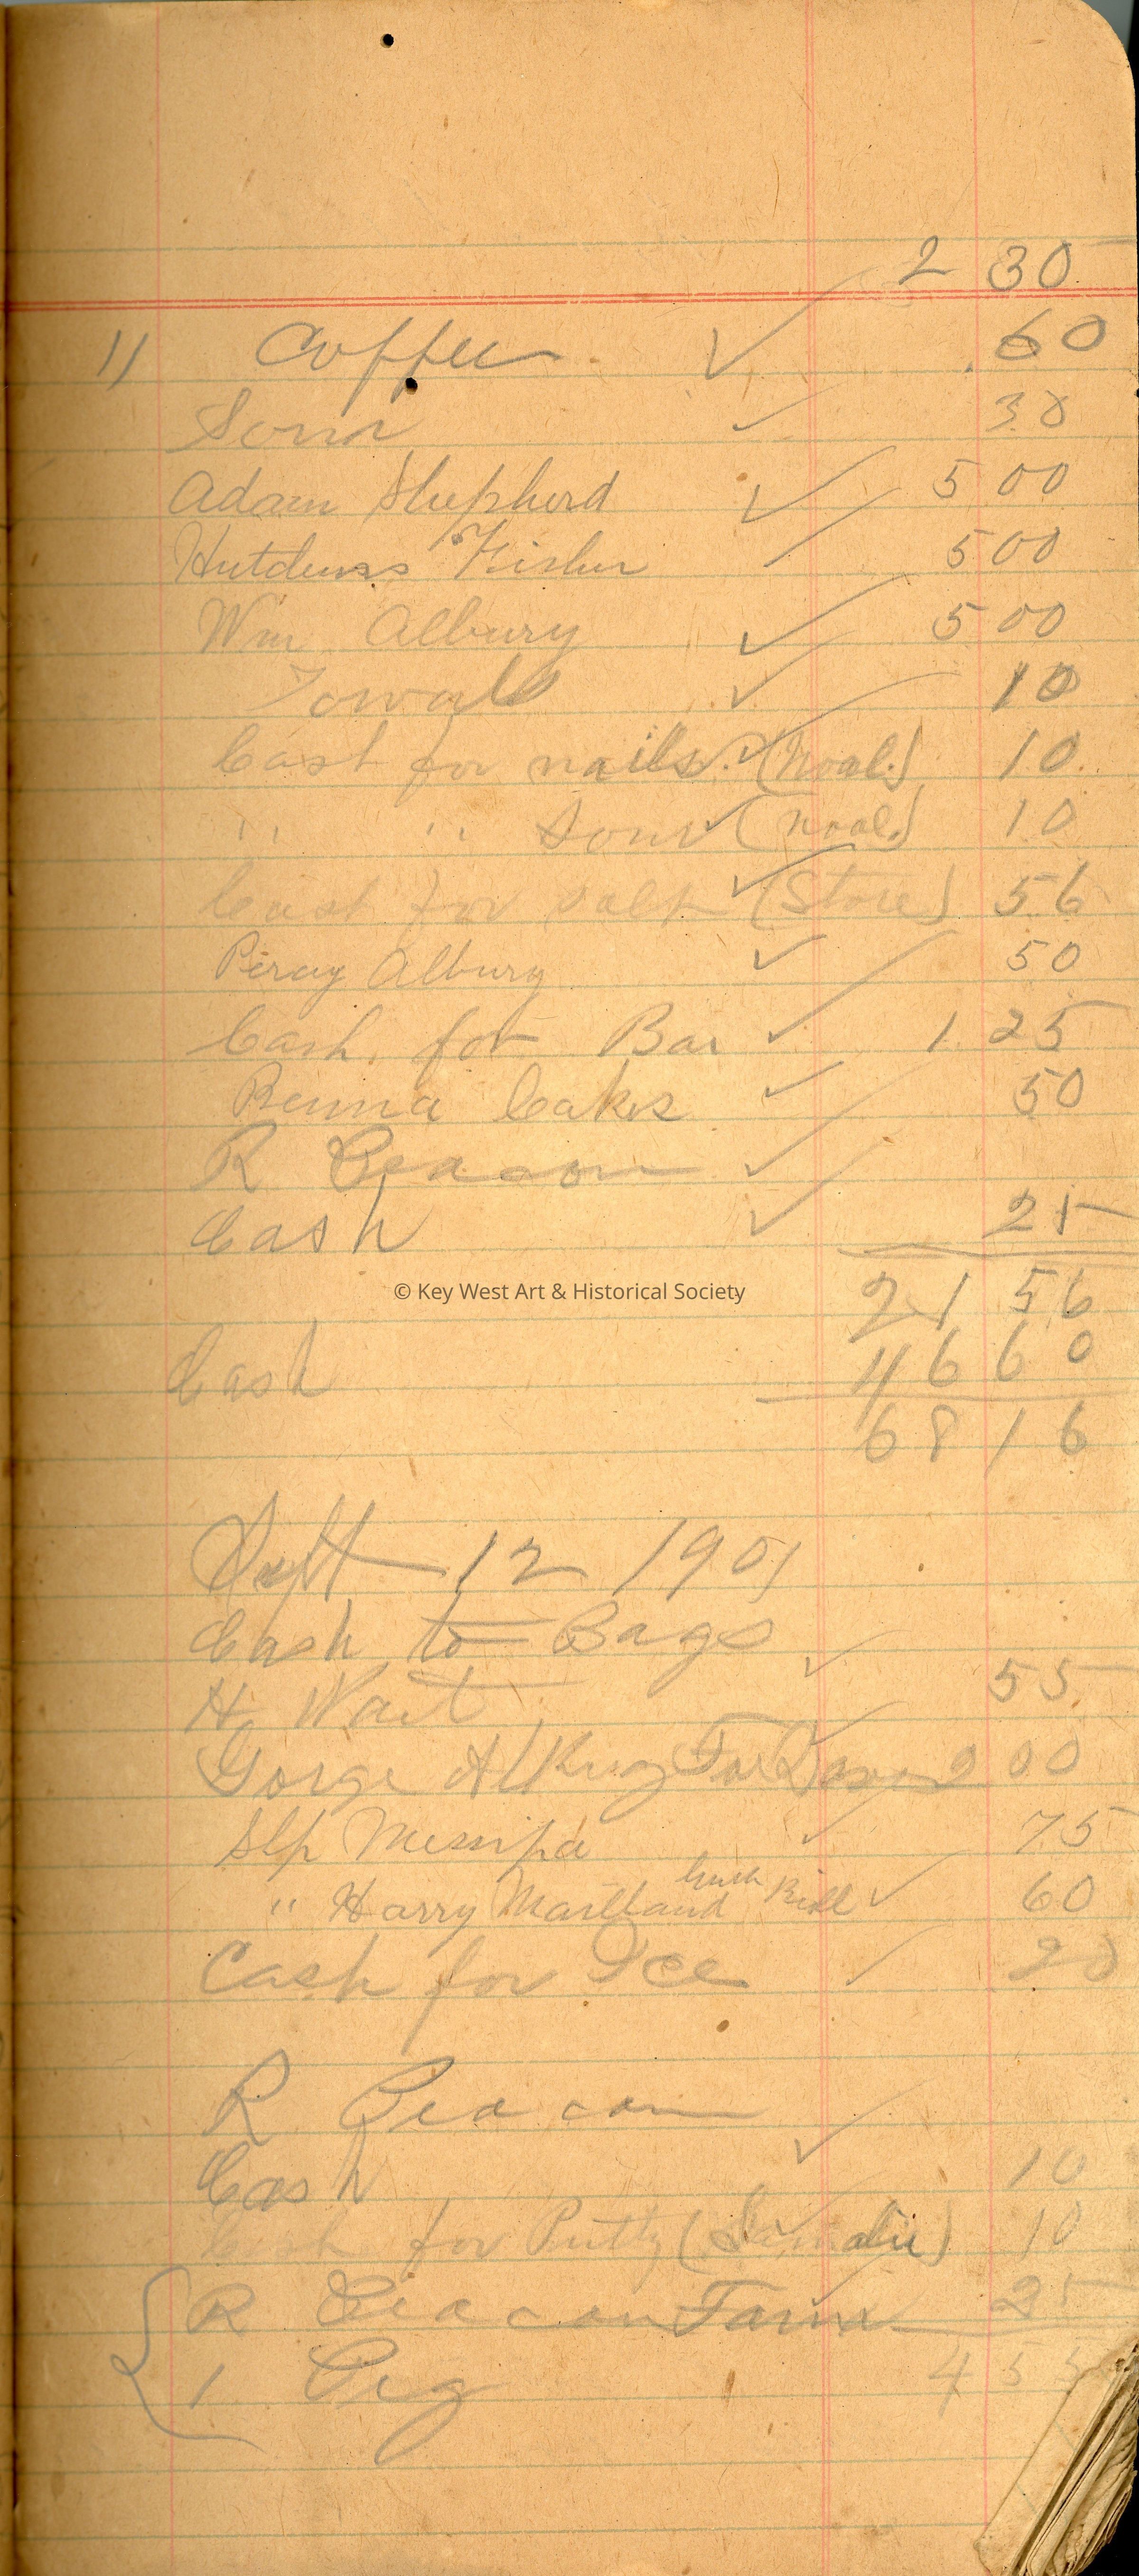 2 30
11 Coffee .60
Sour 30
Adam Shepherd 5 00
Fisher 5 00
Wm Albury 5 00
10
Cash for nails (Noal.) 10
" " Sour (Noal.) 10
Cash for Salt (Store) 56
Percy Albury 50
Cash for Bar 1 25
Benna Cakes 50
R Beacon
Cash 25
© Key West Art & Historical Society
21 56
Cash 46 60
68 16
Sept 12 1901
Cash to Bags
H Wait 55
Gorge 2 00
Slp 75
" Harry Bill 60
Cash for Ice 20
R Beacon
Cash 10
Cash for Putty 10
R Beacon Farm 25
1 Pig 4 55